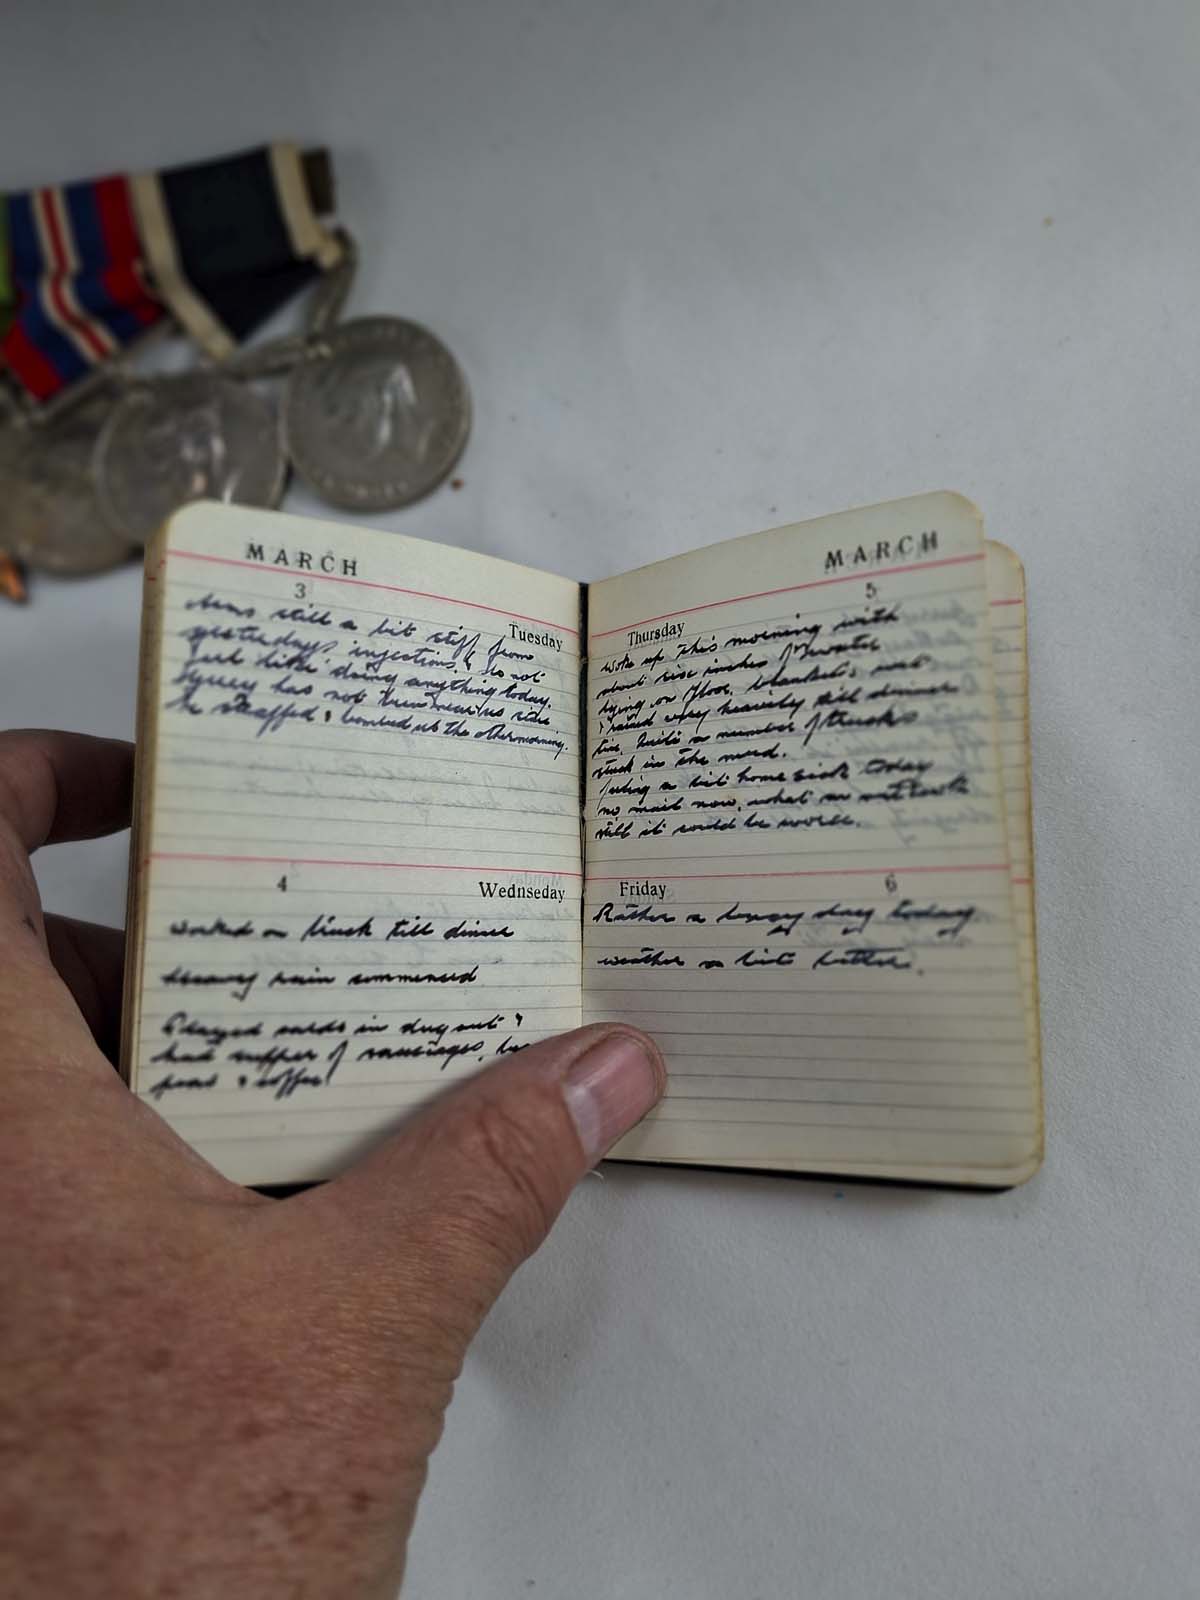 MARCH
3
Tuesday
Arms still a bit stiff from
yesterdays injections & do not
feel like doing anything today.
Gerry has not been near us since
he straffed & bombed us the other morning.
4
Wednseday
worked on truck till dinner
heavy rain commenced
Played cards in dug out &
had supper of sausages,
& coffee
MARCH
5
Thursday
Woke up this morning with
about six inches of water
lying on floor, blankets, wet
& rained very heavily till dinner
time. Quite a number of trucks
stuck in the mud.
feeling a bit home sick today
no mail now, what an
still it could be worse.
Friday
6
Rather a busy day today
weather a bit better.